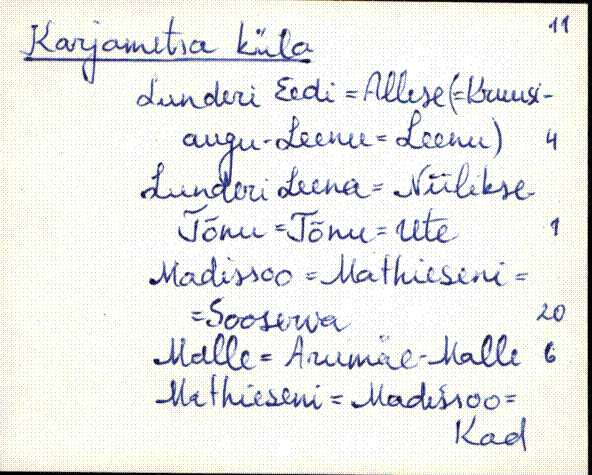 11
Karjametsa küla
Lunderi Eedi = Allese (= Kruusi-
augu-Leenu = Leenu) 4
Lunderi Leena = Niilekse-
Tõnu = Tõnu = Ute 1
Madissoo = Mathieseni =
= Sooserva 20
Malle = Arumäe-Malle 6
Mathieseni = Madissoo =
Kad